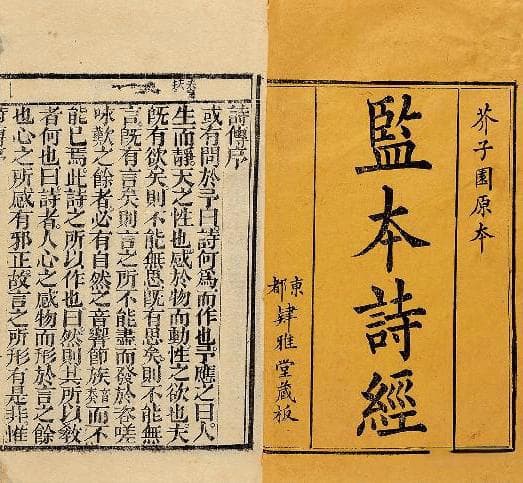 芥子園原本
監本詩經
東都
肄雅堂藏板
詩傳序
或有問於予曰詩何為而作也予應之曰人
生而靜天之性也感於物而動性之欲也夫
既有欲矣則不能無思既有思矣則不能無
言既有言矣則言之所不能盡而發於咨嗟
咏歎之餘者必有自然之音響節族而不
能已焉此詩之所以作也曰然則其所以教
者何也曰詩者人心之感物而形於言之餘
也心之所感有邪正故言之所形有是非惟